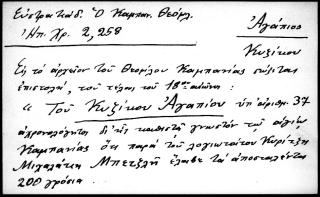 Εὐστρατιάδ. Ὁ Καμπαν. Θεόφιλ.
Ἠπ. Χρ. 2, 258
Ἀγάπιος
Κυζίκου
Εἰς τὸ ἀρχεῖον τοῦ Θεοφίλου Καμπανίας σώζεται
ἐπιστολή, τοῦ τέλους τοῦ 18ου αἰῶνος:
"Τοῦ Κυζίκου Ἀγαπίου ὑπ' ἀριθμ. 37
ἀχρονολόγητος δι' ἧς καθιστᾷ γνωστὸν τῷ ἁγίῳ
Καμπανίας ὅτι παρὰ τοῦ λογιωτάτου Κυρίτζη
Μιχαλάκη Μπετζλῆ ἔλαβε τὰ ἀποσταλέντα
200 γρόσια.